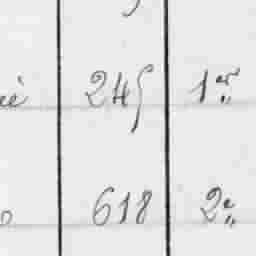 245 1er
618 2e